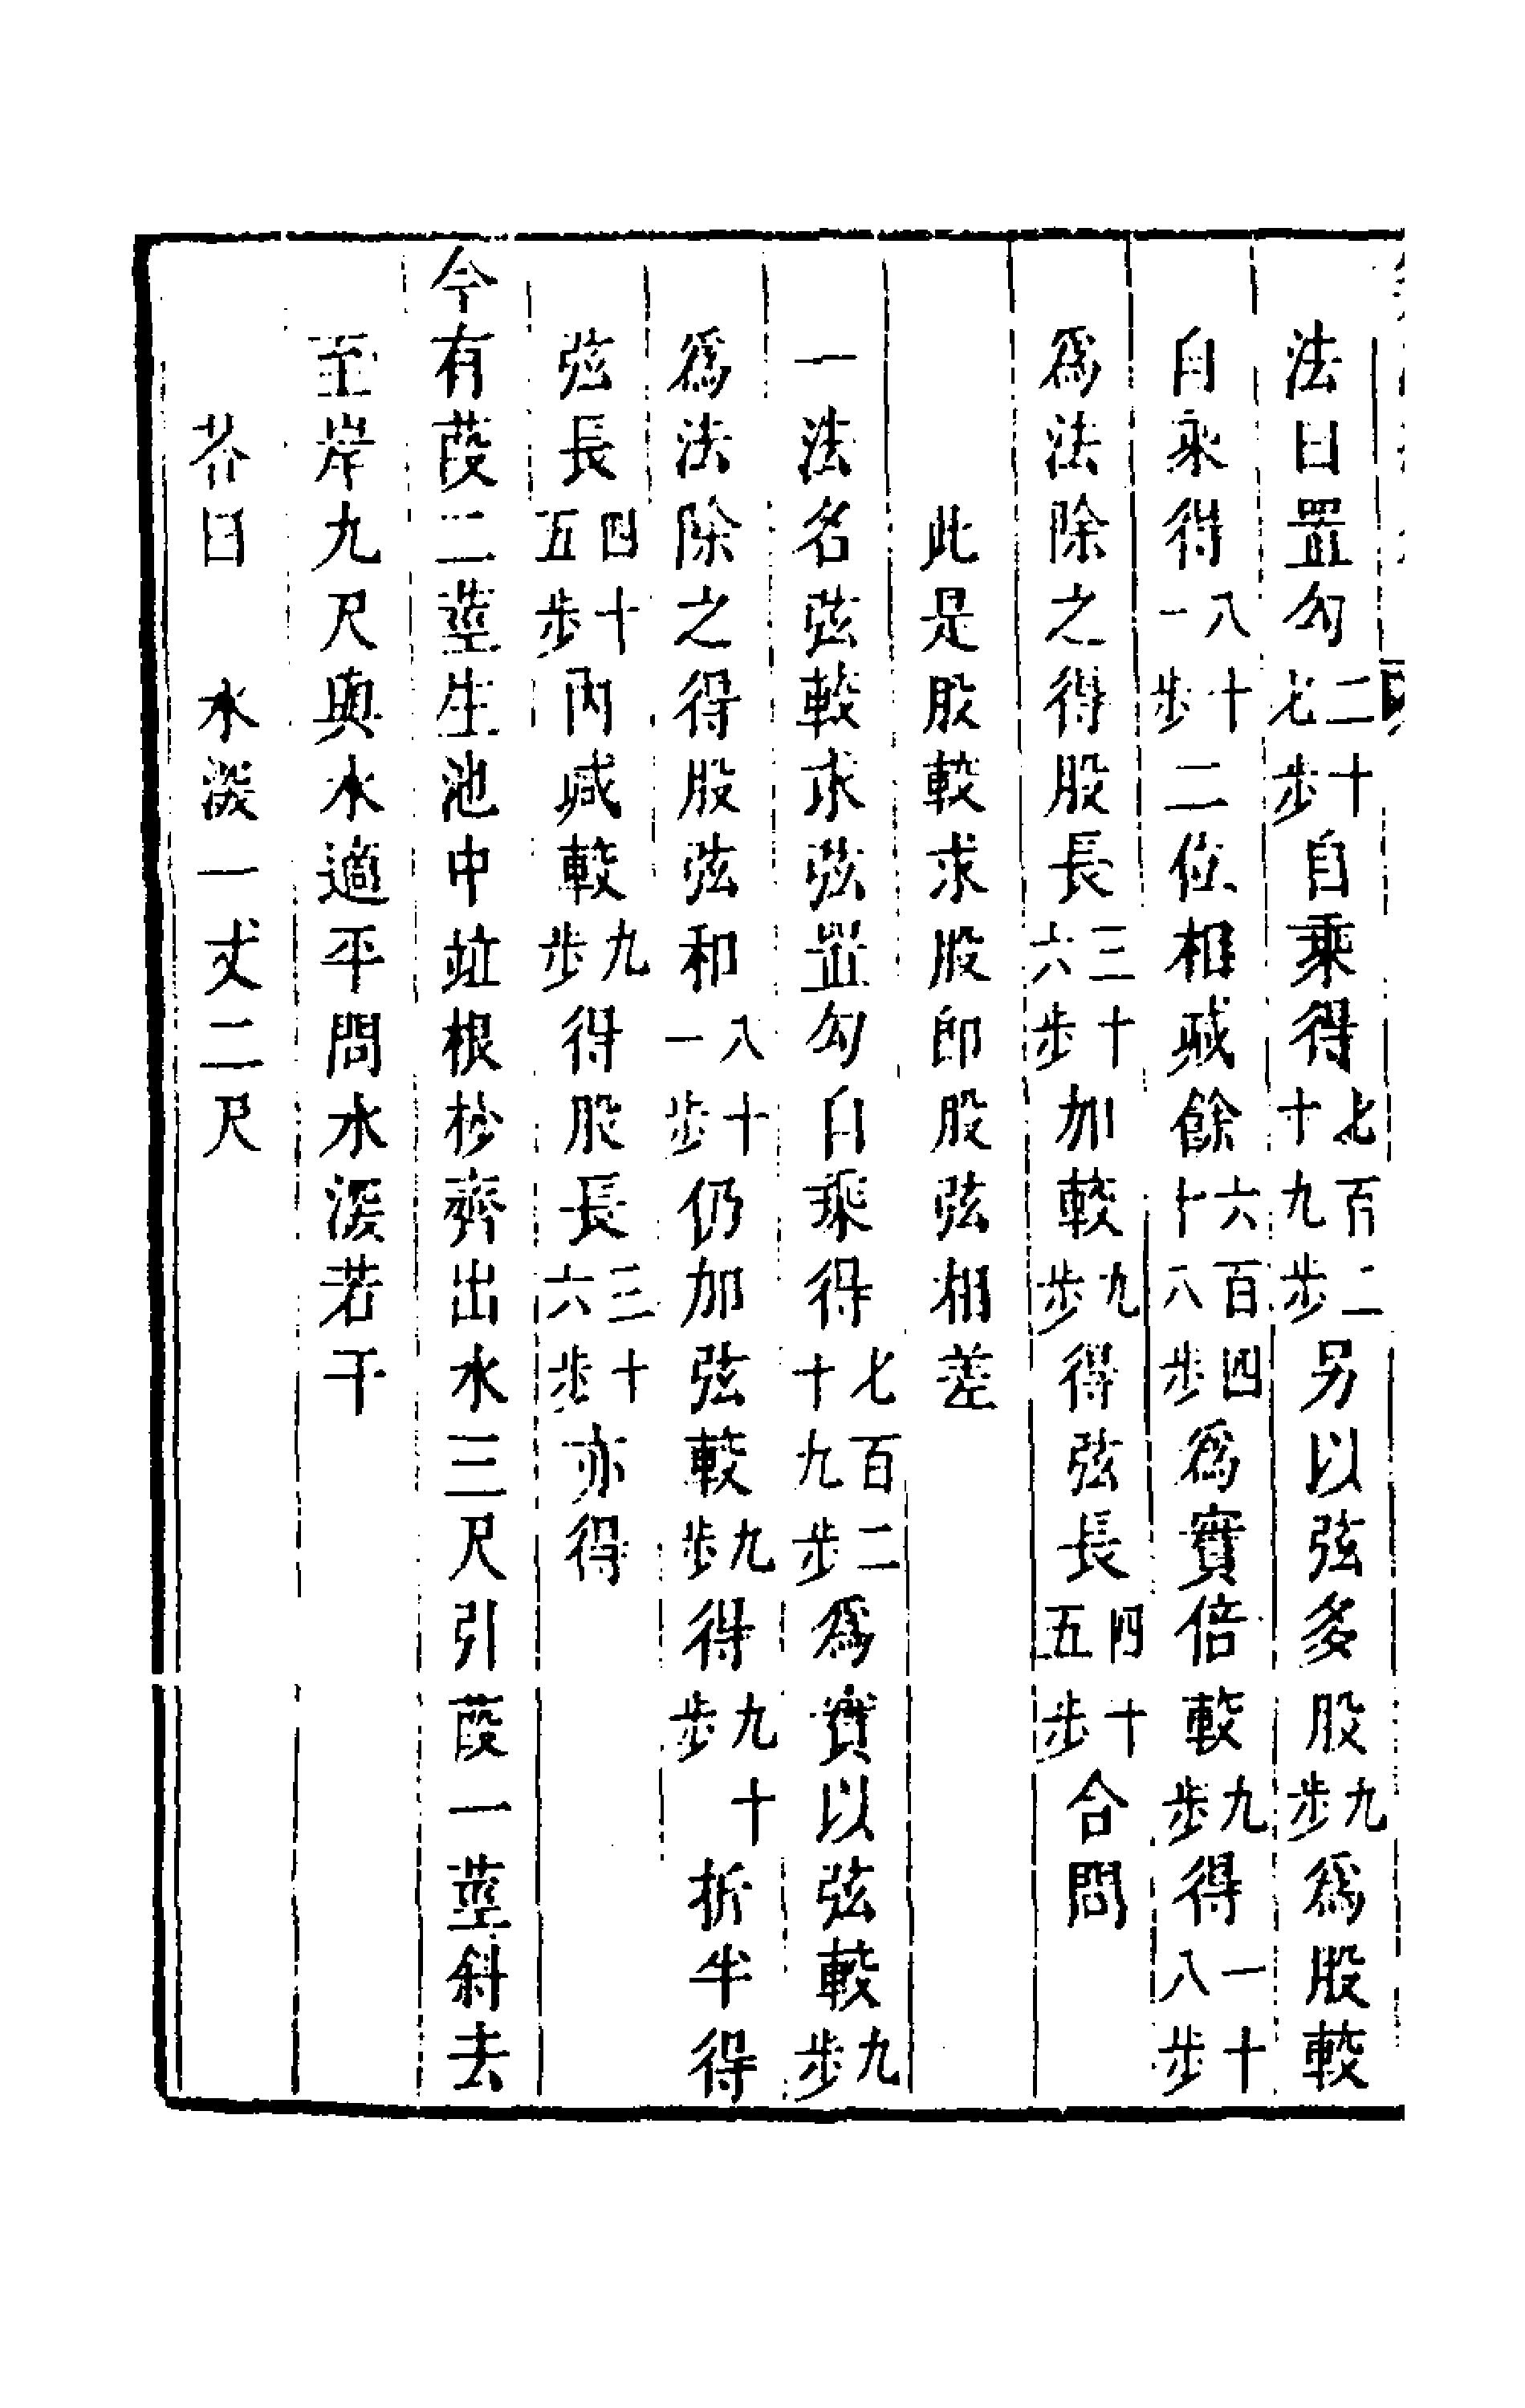 法曰置勾二十七步自乘得七百二十九步另以弦多股九步爲股較
自乘得八十一步二位相減餘六百四十八步爲實倍較九步得一十八步
爲法除之得股長三十六步加較九步得弦長四十五步合問
此是股較求股卽股弦相差
一法名弦較求弦置勾自乘得七百二十九步爲實以弦較九步
爲法除之得股弦和八十一步仍加弦較九步得九十步折半得
弦長四十五步內減較九步得股長三十六步亦得
今有葭二莖生池中竝根杪齊出水三尺引葭一莖斜去
至岸九尺與水適平問水深若干
荅曰 水深一丈二尺